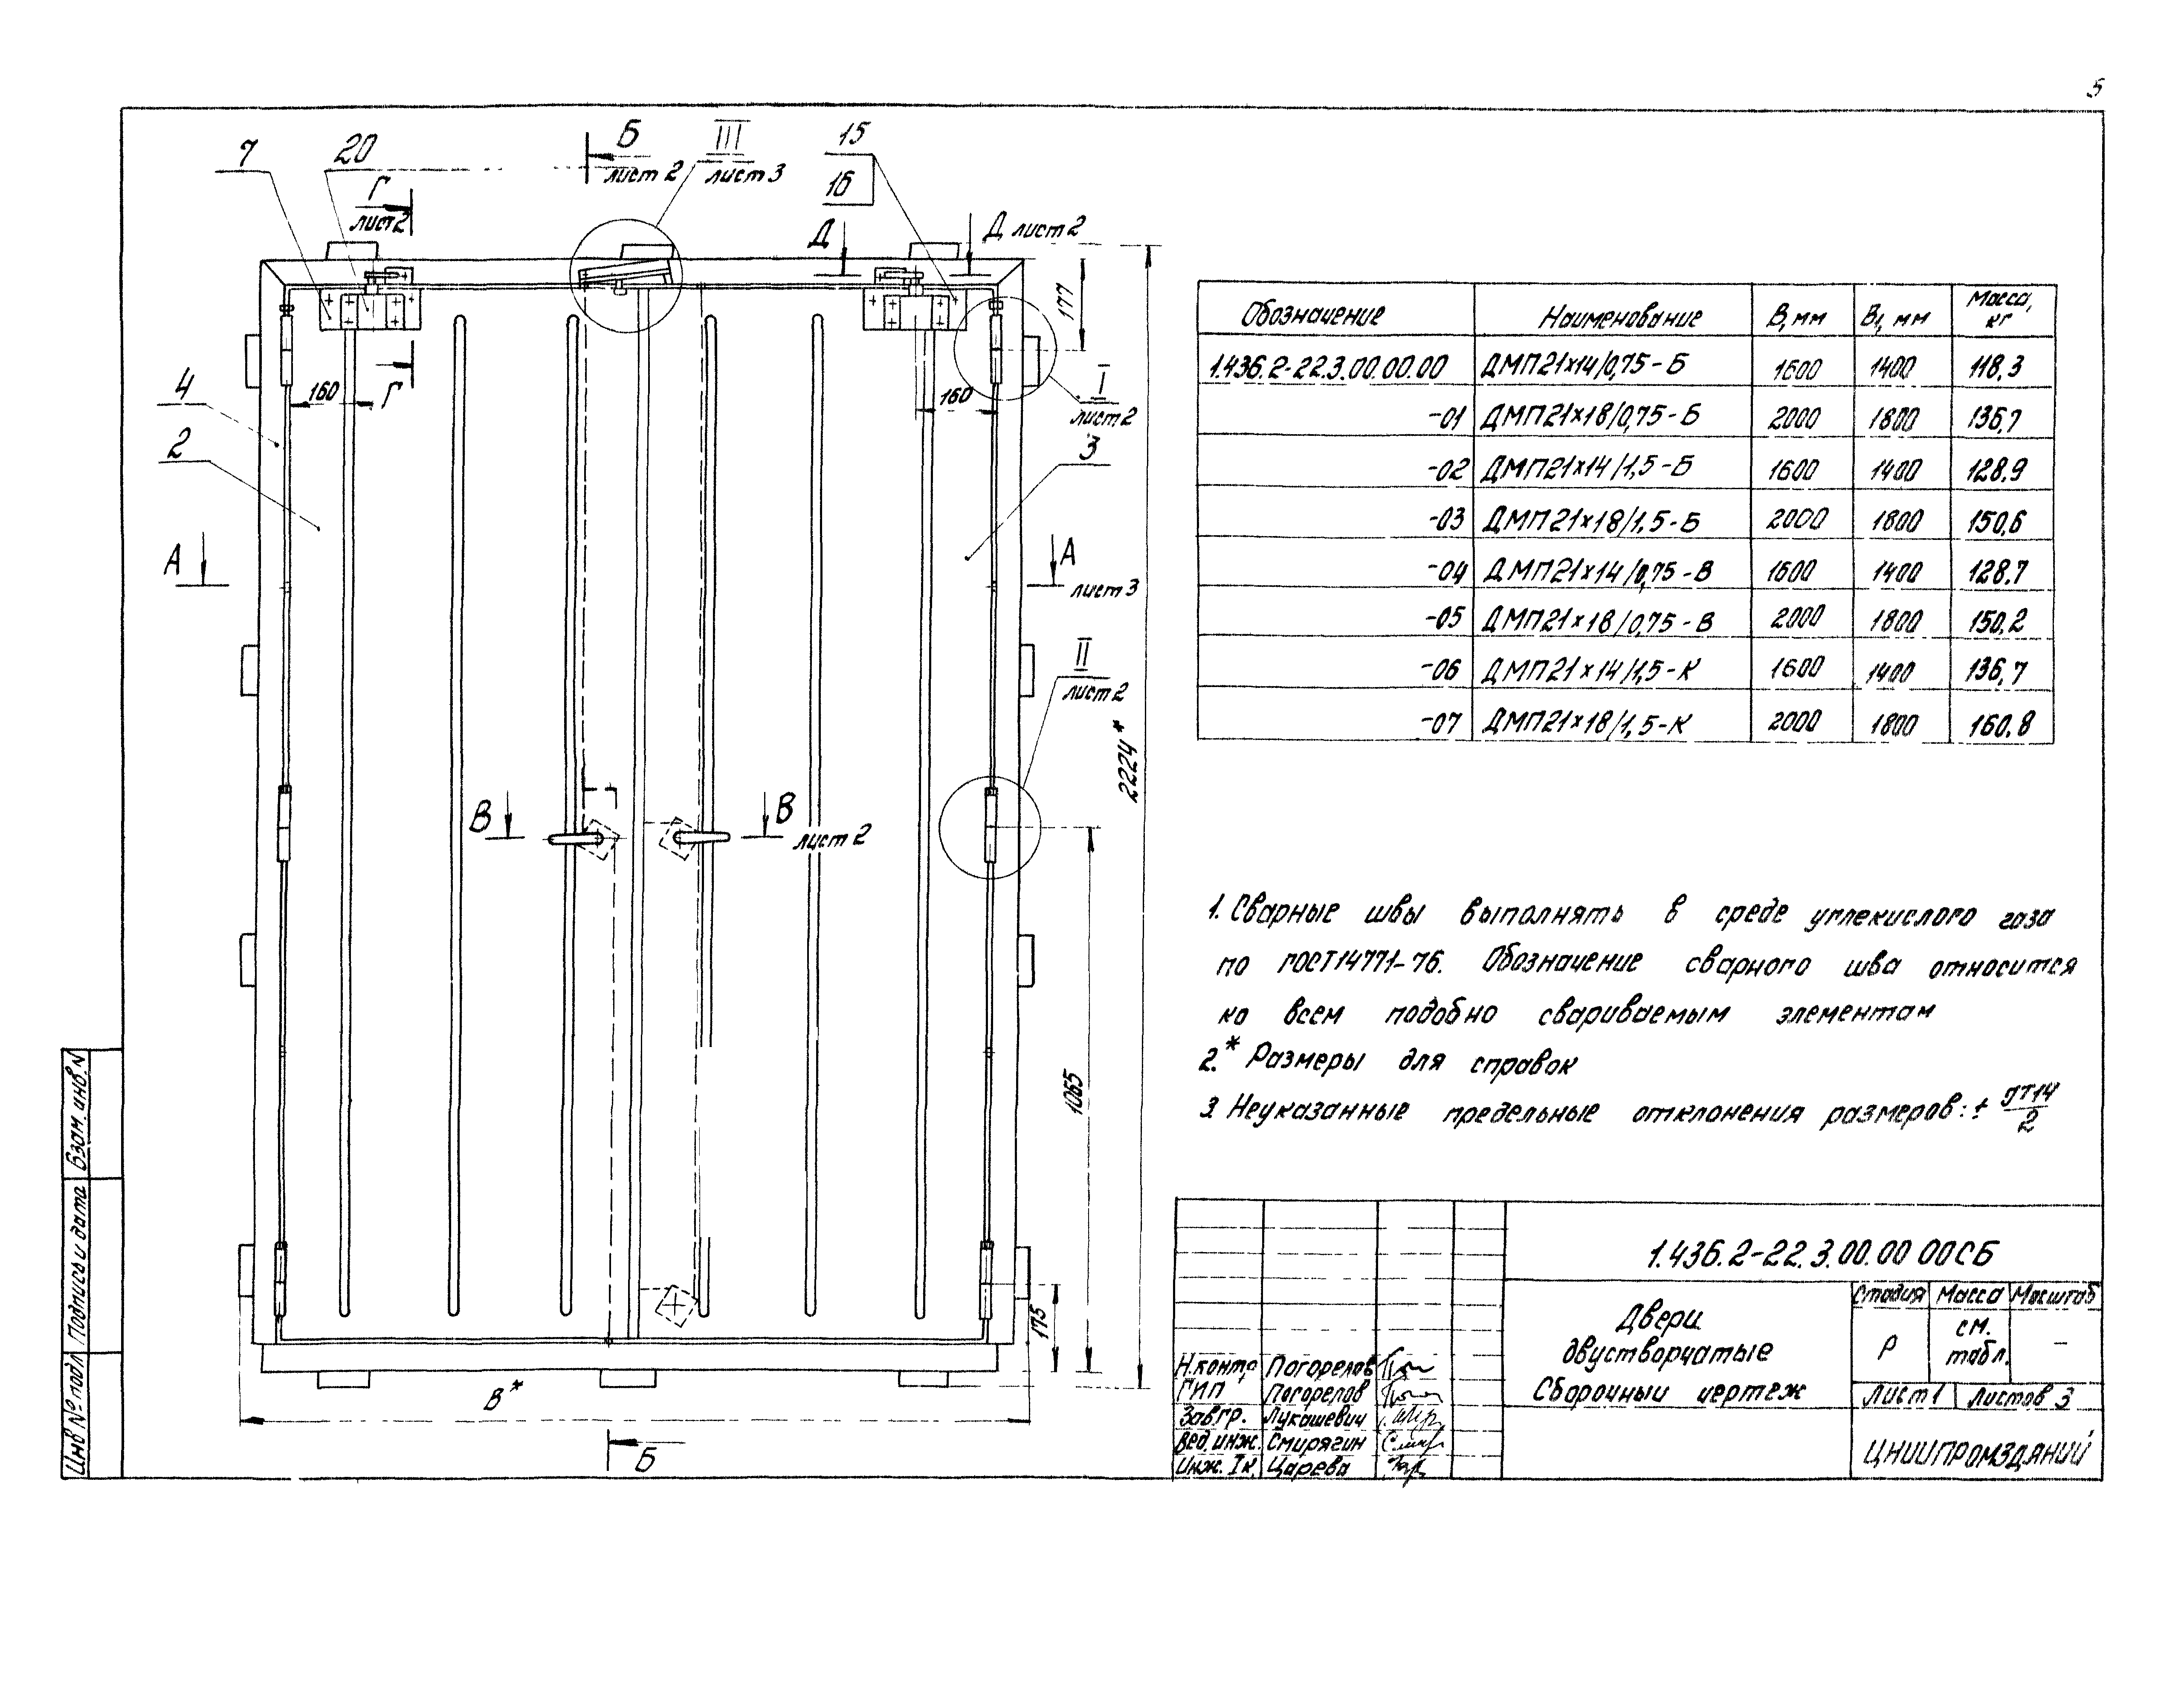 5
7
20
Б
лист 2
III
лист 3
15
16
Г
лист 2
Д
Д лист 2
177
4
160
Г
160
I
лист 2
2
3
А
А
лист 3
II
лист 2
2224*
В
В
лист 2
1065
175
В*
Б
Обозначение Наименование В, мм В1, мм Масса, кг
1.436.2-22.3.00.00.00 ДМП21×14/0,75-Б 1600 1400 118.3
-01 ДМП21×18/0,75-Б 2000 1800 136,7
-02 ДМП21×14/1,5-Б 1600 1400 128.9
-03 ДМП21×18/1,5-Б 2000 1800 150,6
-04 ДМП21×14/0,75-В 1600 1400 128.7
-05 ДМП21×18/0,75-В 2000 1800 150,2
-06 ДМП21×14/1,5-К 1600 1400 136,7
-07 ДМП21×18/1,5-К 2000 1800 160.8
1. Сварные швы выполнять в среде углекислого газа
по ГОСТ14771-76. Обозначение сварного шва относится
ко всем подобно свариваемым элементам
2.* Размеры для справок
3 Неуказанные предельные отклонения размеров: ± JT14/2
1.436.2-22.3.00.00 00СБ
Двери
двустворчатые
Сборочный чертеж
Стадия Масса Масштаб
Р см. табл. —
Лист 1 Листов 3
ЦНИИПРОМЗДАНИЙ
Н.контр Погорелов
ГИП Погорелов
Зав.гр. Лукашевич
Вед.инж. Смирягин
Инж. Iк. Царева
Инв № подл
Подпись и дата
Взам. инв. N